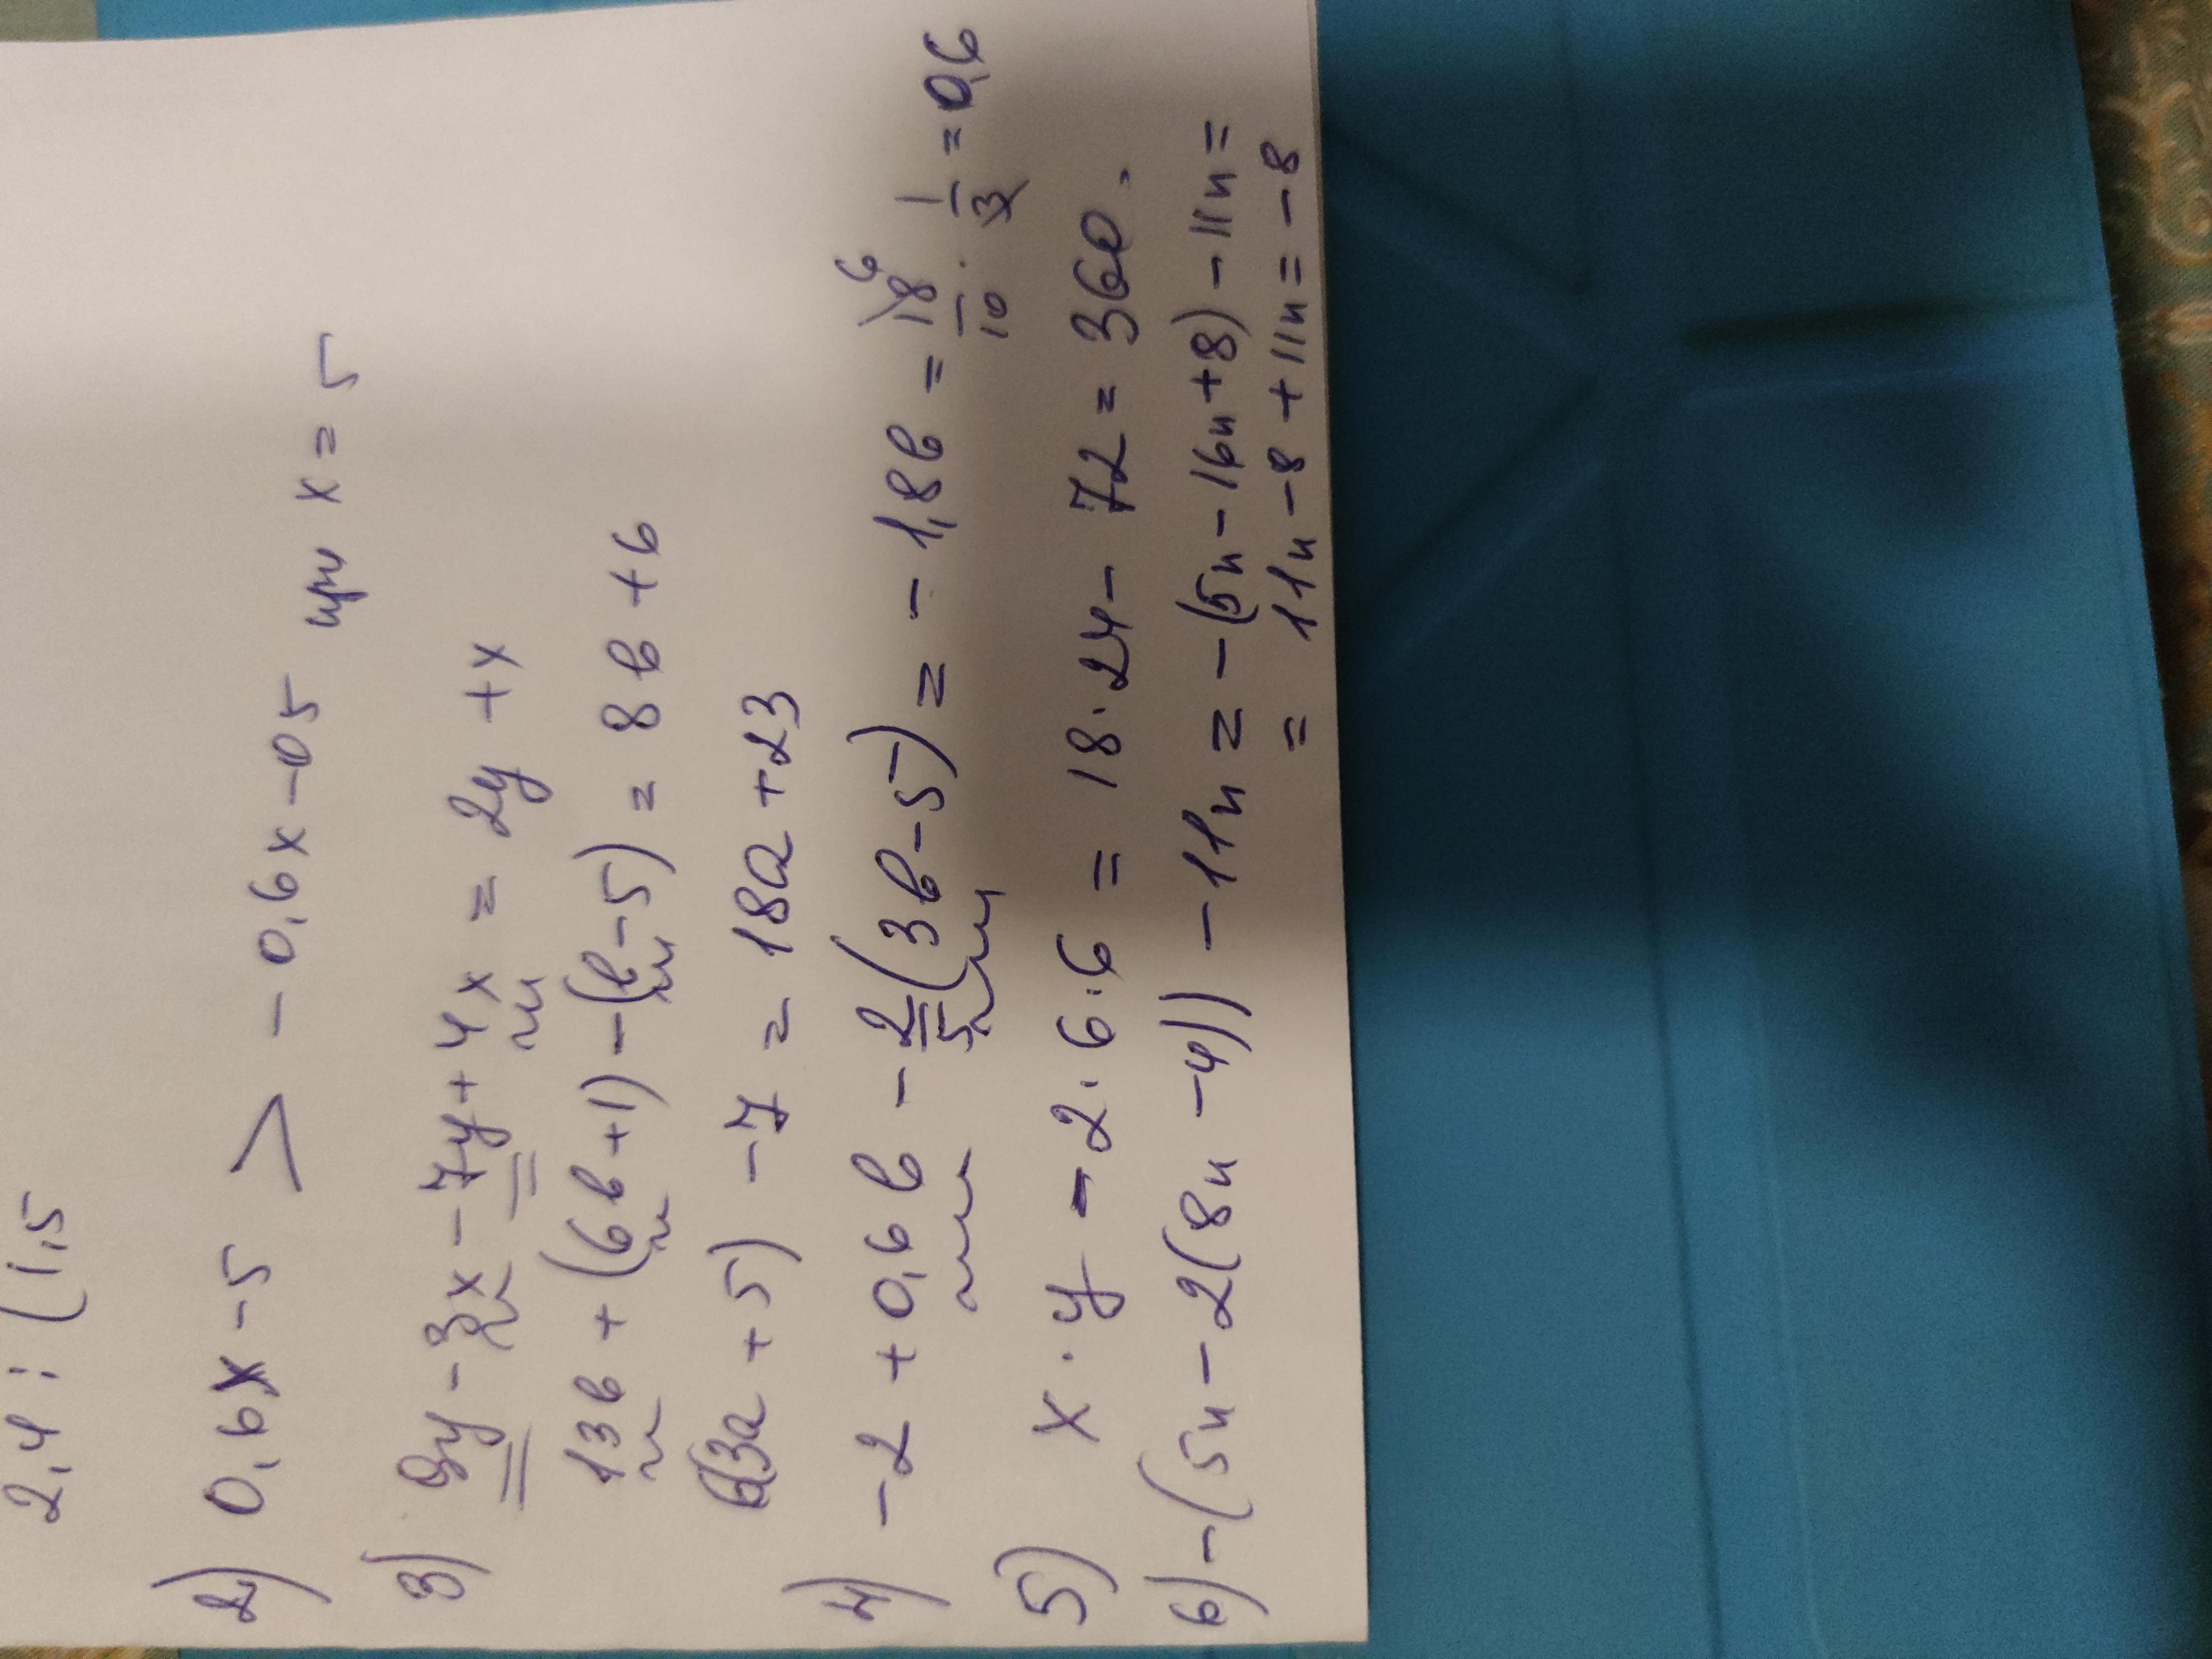 2,4 : (1,5
2) 0,6x -5 > -0,6x -05 при x = 5
3) 9y -3x -7y + 4x = 2y + x
13b + (6b +1) -(b -5) = 8b +6
6(3a + 5) -7 = 18a +23
4) -2 + 0,6b - 2/5 (3b -5) = -1,8b = 18/10 · 1/3 = 0,6
6
5) x · y - 2 · 6 · 6 = 18 · 24 - 72 = 360.
6) -(5n -2(8n -4)) -11n = -(5n -16n +8) -11n =
= 11n -8 + 11n = -8